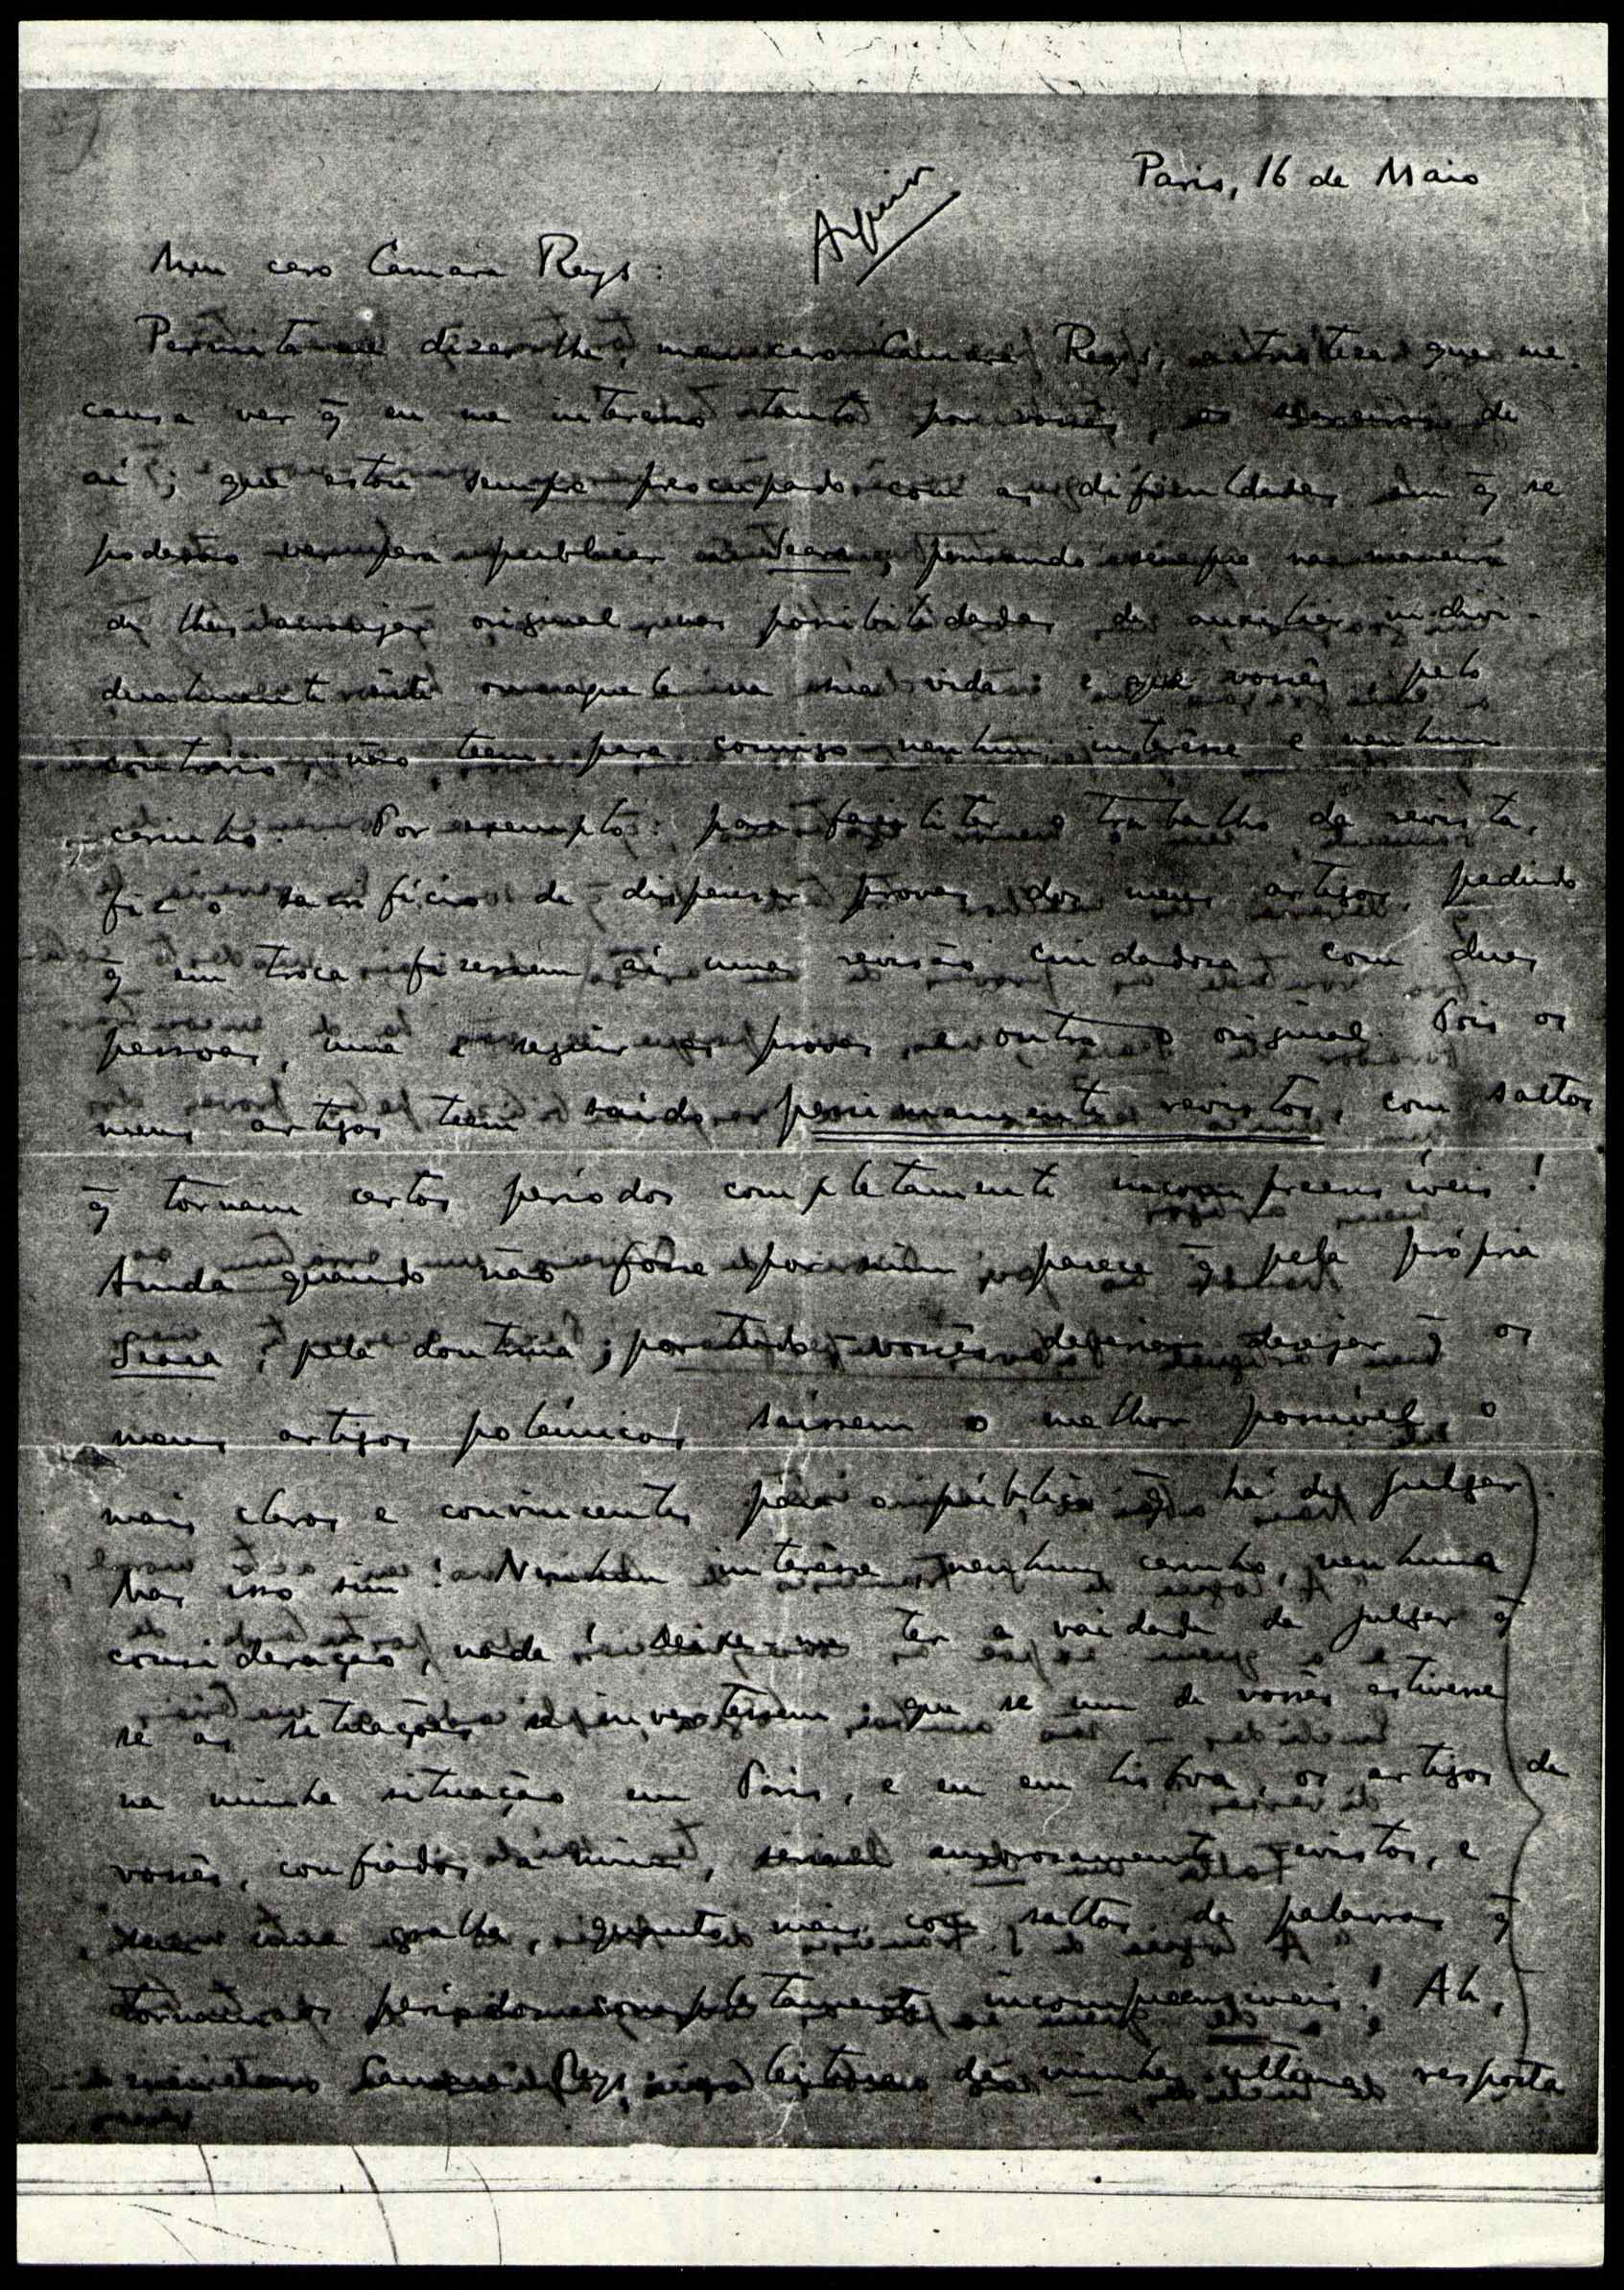 Paris, 16 de Maio
Meu caro Camara Reys:
Permita-me dizer-lhe, meu caro Camara Reys, a tristeza que me
causa ver q̃ eu me interesso tanto por vossês, os de
aí; que estou sempre preocupado com as dificuldades em q̃ se
poderão ver para publicar a Seara, pensando sempre na maneira
de lhes arranjar original, nas possibilidades de auxiliar indivi-
dualmente na sua vida; e que vossês, pelo
contrário, não teem para comigo nenhum interêsse e nenhum
carinho. Por exemplo: para facilitar o trabalho da revista,
fiz o sacrifício de dispensar provas dos meus artigos, pedindo
q̃ em troca fizessem aí uma revisão cuidadosa, com duas
pessoas, uma a seguir as provas e outra o original. Pois os
meus artigos teem saído pessimamente revistos, com saltos
q̃ tornam certos períodos completamente incompreensíveis!
Ainda quando não fôsse por mim, parece q̃ pela própria
Seara, pela doutrina, por tudo, vossês deveriam desejar q̃ os
meus artigos polémicos saíssem o melhor possível, o
mais claros e convincentes para o público q̃ há de julgar.
Mas isso sim! Nenhum interêsse, nenhum carinho, nenhuma
consideração, nada! Deixe-me ter a vaidade de julgar q̃
se as situações se invertessem, que se um de vossês estivesse
na minha situação em Paris, e eu em Lisboa, os artigos de
vossês, confiados a mim, seriam amorosamente revistos, e
sem uma gralha, quanto mais com saltos de palavras q̃
tornam os períodos completamente incompreensíveis! Ah,
meu caro Camara Reys, leitores da minha última resposta